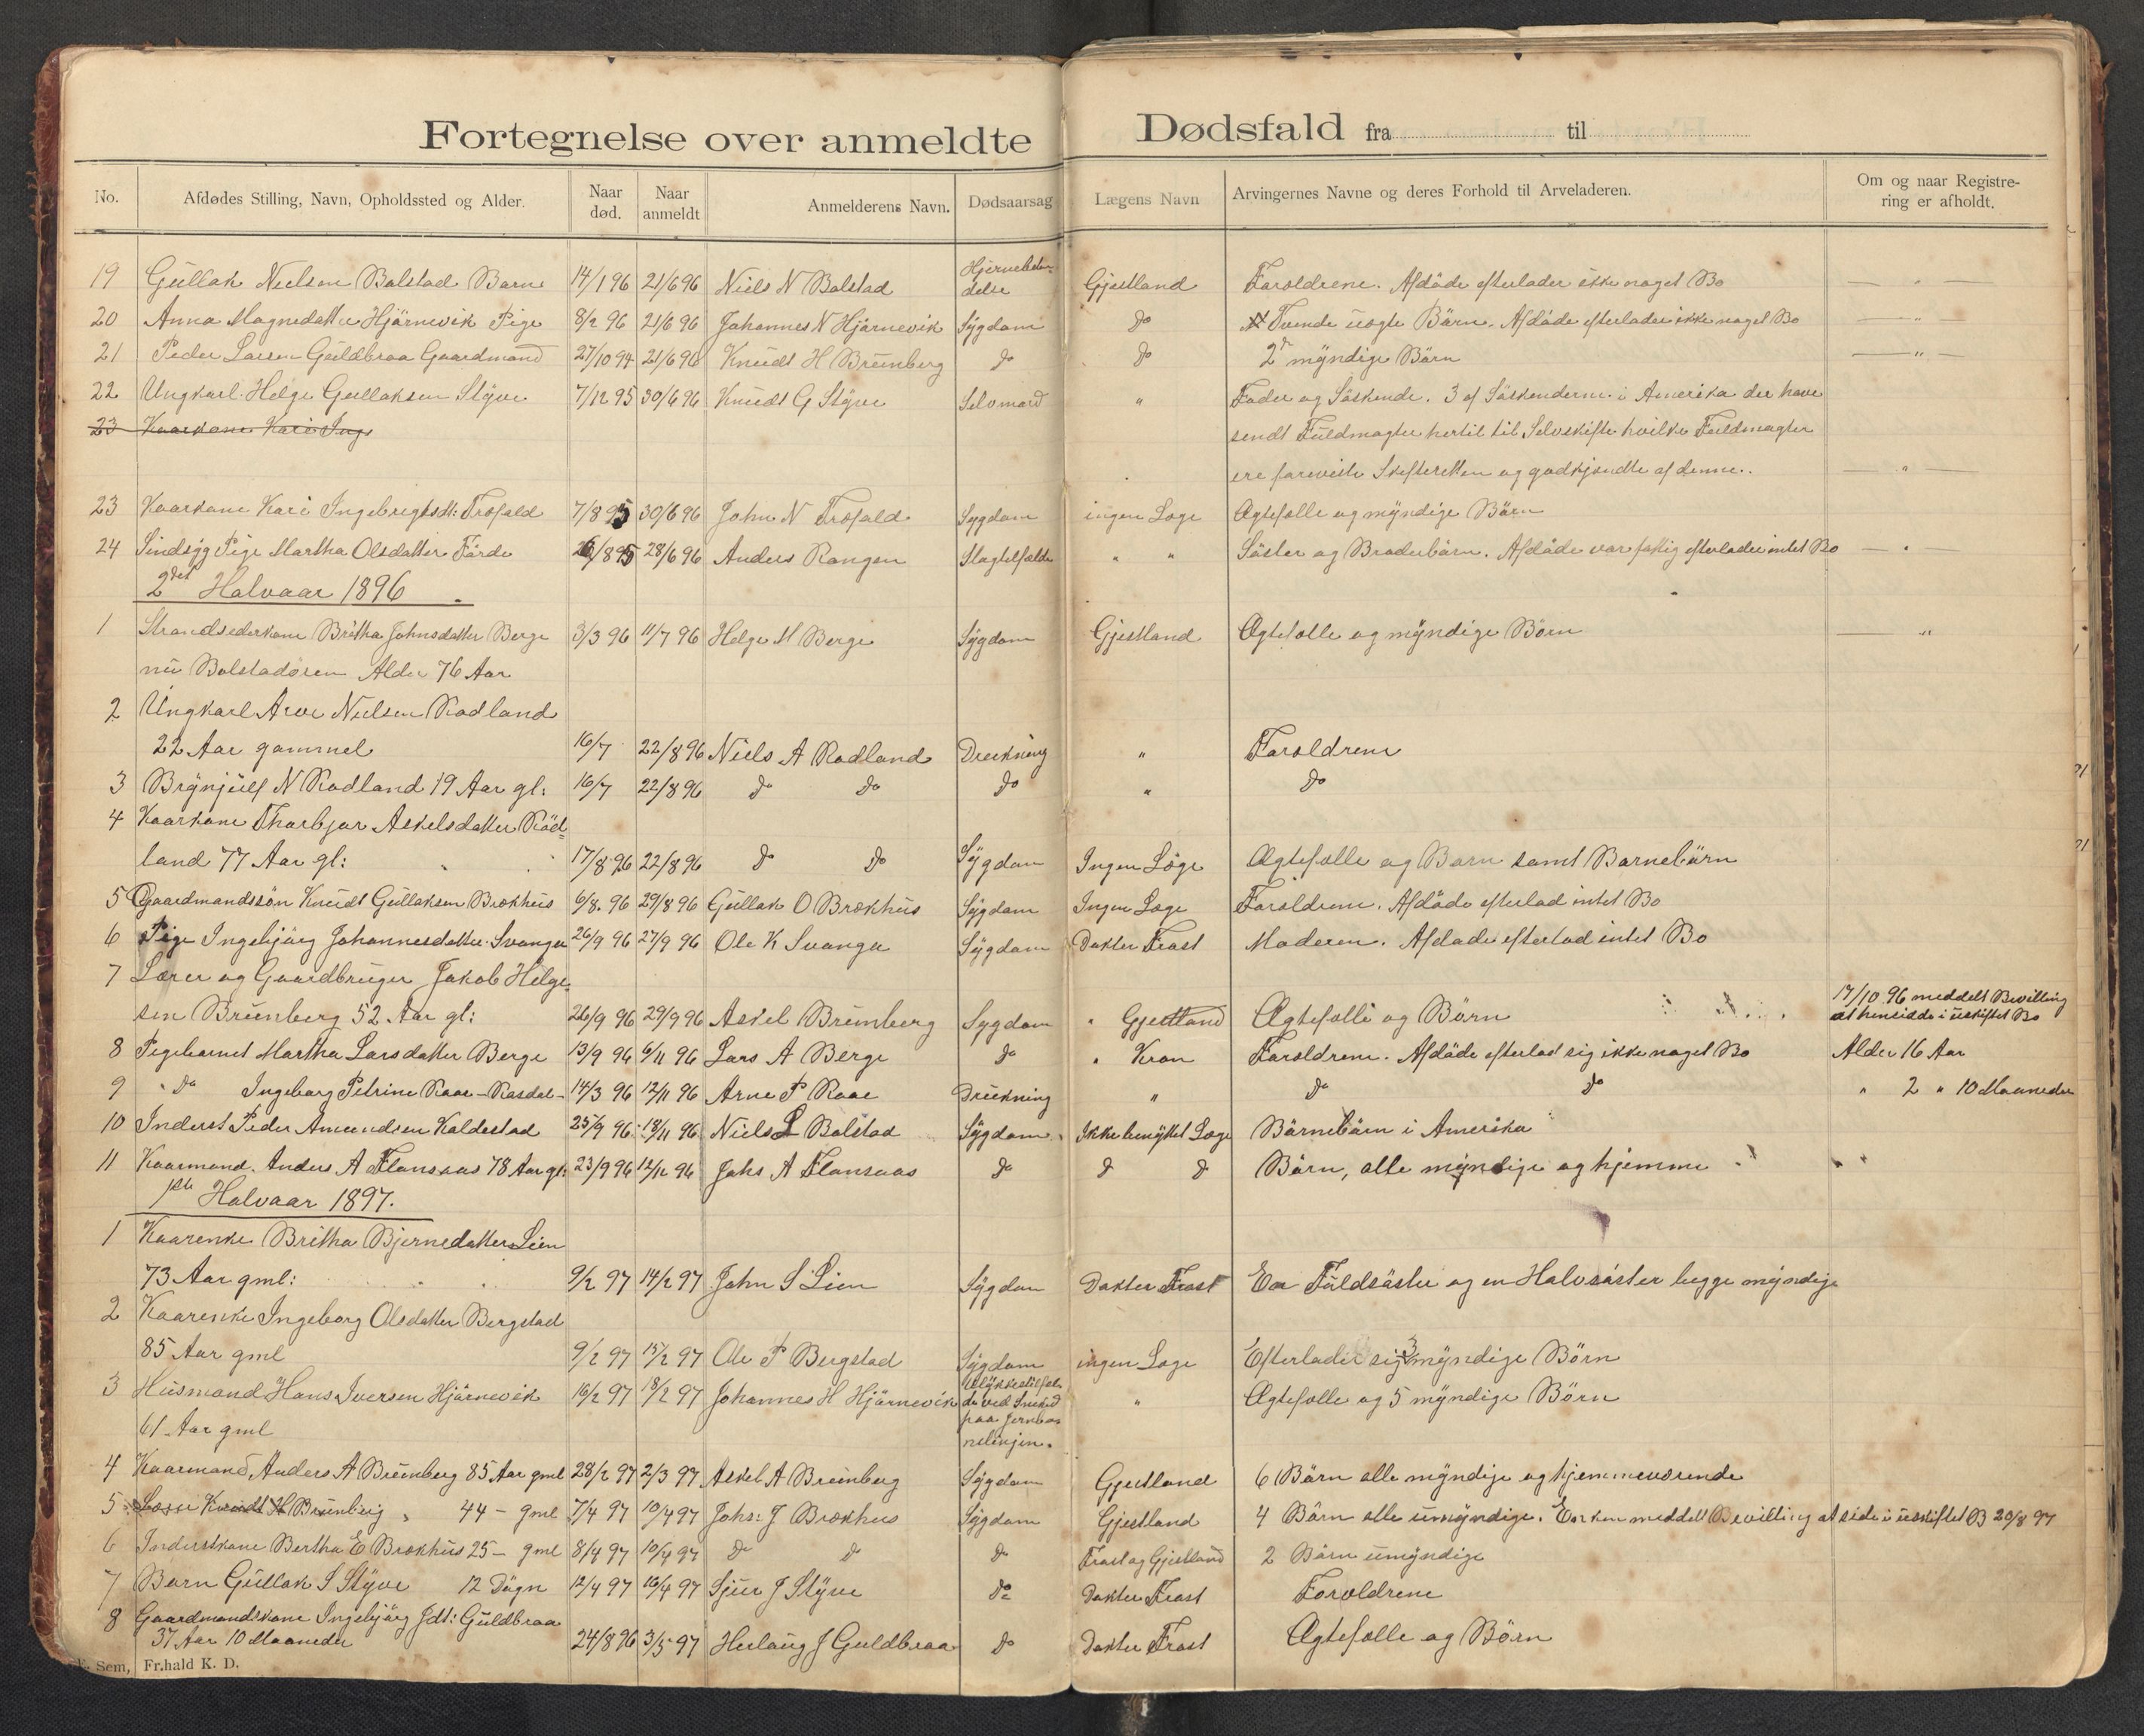 Fortegnelse over anmeldte Dødsfald fra til
No. Afdødes Stilling, Navn, Opholdssted og Alder. Naar død. Naar anmeldt Anmelderens Navn. Dødsaarsag Lægens Navn Arvingernes Navne og deres Forhold til Arveladeren. Om og naar Registrering er afholdt.
19 Gullak Nielsen Bolstad Barn 14/1 96 21/6 96 Niels N Bolstad Gjestland Foroldrene. Afdöde efterlader ikke noget Bo — " —
20 Anna Magnedatter Hjörnevik Pige 8/2 96 21/6 96 Johannes N Hjörnevik Sygdom do Tvende uægte Börn. Afdöde efterlader ikke noget Bo — " —
21 Peder Larsen Guldbraa Gaardmand 27/10 94 21/6 96 Knudt H Brunborg do do 2 myndige Börn — " —
22 Ungkarl Helge Gullaksen Styve 7/12 95 30/6 96 Knudt G Styve Selvmord " Fader og Söskende. 3 af Söskenderne i Amerika der have
23 Kaarkone Kari Ing sendt Fuldmagter hertil til Selvskifte hvilke Fuldmagter
ere foreviste Skifteretten og godkjendte af denne. — " —
23 Kaarkone Kari Ingebrigtsdt: Trofald 7/8 95 30/6 96 John N Trofald Sygdom ingen Læge Ægtefælle og myndige Börn
24 Sindsyg Pige Martha Olsdatter Förde 26/8 95 28/6 96 Anders Rongen Slagtilfælde " " Söster og Broderbörn. Afdöde var fattig efterlader intet Bo — " —
2det Halvaar 1896
1 Strandsiderkone Britha Johnsdatter Berge 3/3 96 11/7 96 Helge M Berge Sygdom Gjestland Ægtefælle og myndige Börn — "
nu Bolstadören Alder 76 Aar
2 Ungkarl Arve Nielsen Rödland
22 Aar gammel 16/7 22/8 96 Niels A Rödland Drukning " Foroldrene
3 Brynjulf N Rödland 19 Aar gl: 16/7 22/8 96 do do do " do
4 Kaarkone Thorbjør Askelsdatter Röd=
land 77 Aar gl: 17/8 96 22/8 96 do do Sygdom Ingen Læge Ægtefælle og Barn samt Barnebörn
5 Gaardmandssön Knudt Gullaksen Brækhus 6/8. 96 29/8 96 Gullak O Brækhus Sygdom Ingen Læge Foroldrene. Afdöde efterlod intet Bo
6 Pige Ingebjörg Johannesdatter Svanga 26/9 96 27/9 96 Ole K Svanga Sygdom Dokter Frost Moderen. Afdöde efterlod intet Bo
7 Lærer og Gaardbruger Jakob Helge=
sen Brunborg 52 Aar gl: 26/9 96 29/9 96 Askel Brunborg Sygdom " Gjestland Ægtefælle og Börn 17/10 96 meddelt Bevilling
at hensidde i uskiftet Bo
8 Pigebarnet Martha Larsdatter Berge 13/9 96 6/11 96 Lars A Berge do " Kron Foroldrene. Afdöde efterlod sig ikke noget Bo Alder 16 Aar
9 " do Ingeborg Petrine Raae - Rasdal - 14/3 96 12/11 96 Arne P Raae Drukning " do do " 2 " 10 Maaneder
10 Inderst Peder Amundsen Kaldestad 25/9 96 18/11 96 Niels L Bolstad Sygdom Ikke benyttet Læge Börnebörn i Amerika
11 Kaarmand. Anders A Flansaas 78 Aar gl: 23/9 96 12/12 96 Johs A Flansaas do do do Börn, alle myndige og hjemme
1ste Halvaar 1897.
1 Kaarenke Britha Bjernedatter Lien
73 Aar gml: 9/2 97 14/2 97 John S Lien Sygdom Dokter Frost En Fuldsöster og en Halvsöster begge myndige
2 Kaarenke Ingeborg Olsdatter Bergstad
85 Aar gml 9/2 97 15/2 97 Ole P Bergstad Sygdom ingen Læge Efterlader sig 3 myndige Börn
3 Husmand Hans Iversen Hjörnevik 16/2 97 18/2 97 Johannes H Hjörnevik Ulykkestilfæl-
de ved
paa Jernba
nelinjen. " Ægtefælle og 5 myndige Börn
61 Aar gml
4 Kaarmand, Anders A Brunborg 85 Aar gml 28/2 97 2/3 97 Askel A Brunborg Sygdom Gjestland 6 Börn alle myndige og hjemmeværende
5 Knudt H Brunborg 44 - gml 7/4 97 10/4 97 Johs: J Brækhus Sygdom Gjestland 4 Börn alle umyndige. Enken meddelt Bevilling at side i uskiftet B 20/8 97
6 Inderstkone Bertha E Brækhus 25 - gml 8/4 97 10/4 97 do do do Frost og Gjestland 2 Börn umyndige
7 Barn Gullak S Styve 12 Dögn 12/4 97 16/4 97 Sjur J Styve do Dokter Frost Foroldrene
8 Gaardmandskone Ingebjörg Jdt: Guldbraa
37 Aar 10 Maaneder 24/8 96 3/5 97 Herlaug J Guldbraa do Dokter Frost Ægtefælle og Börn
Sem, Fr.hald K. D.